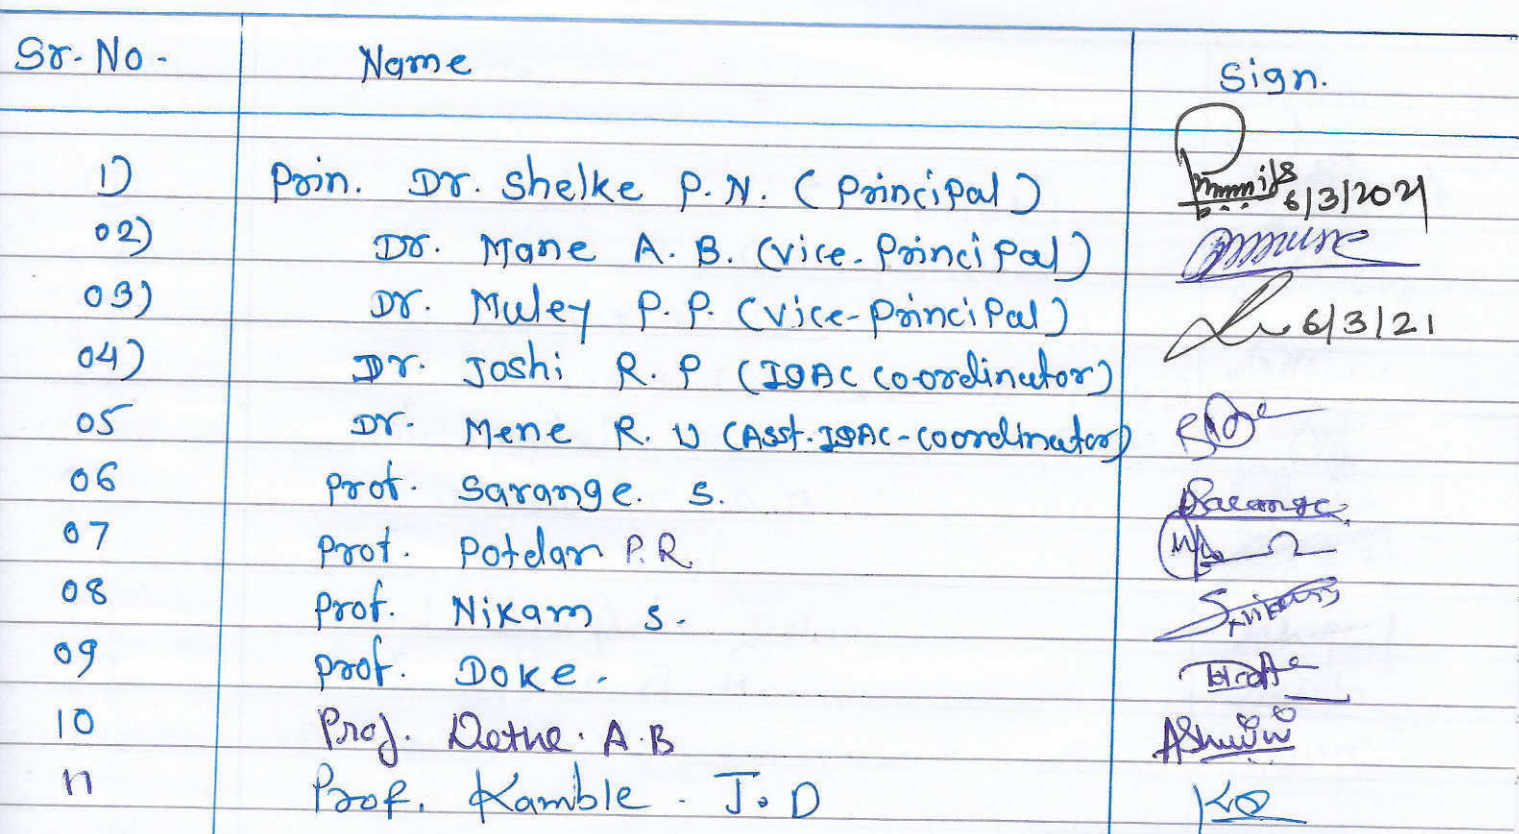 Sr. No. Name Sign.
1) Prin. Dr. Shelke P. N. (Principal) 6/3/2021
02) Dr. Mane A. B. (Vice-Principal)
03) Dr. Muley P. P. (Vice-Principal) 6/3/21
04) Dr. Joshi R. P (IQAC Co-ordinator)
05 Dr. Mene R. U (Asst. IQAC-Coordinator)
06 Prof. Sarange. S. Sarange
07 Prof. Potdar P.R.
08 Prof. Nikam S.
09 Prof. Doke.
10 Prof. Dethe. A.B
11 Prof. Kamble. J.D